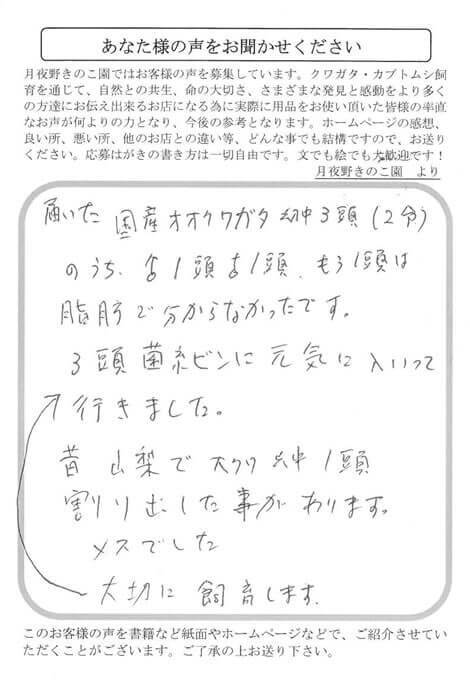 あなた様の声をお聞かせください
月夜野きのこ園ではお客様の声を募集しています。クワガタ・カブトムシ飼
育を通じて、自然との共生、命の大切さ、さまざまな発見と感動をより多く
の方達にお伝え出来るお店になる為に実際に用品をお使い頂いた皆様の率直
なお声が何よりの力となり、今後の参考となります。ホームページの感想、
良い所、悪い所、他のお店との違い等、どんな事でも結構ですので、お送り
ください。応募はがきの書き方は一切自由です。文でも絵でも大歓迎です！
月夜野きのこ園 より
届いた 国産オオクワガタ 幼虫3頭(2令)
のうち、♂1頭♀1頭、もう1頭は
脂肪で分からなかったです。
3頭菌糸ビンに元気に入いって
行きました。
昔 山梨で大クワ 幼虫1頭
割り出した事があります。
メスでした
大切に飼育します。
このお客様の声を書籍など紙面やホームページなどで、ご紹介させてい
ただくことがございます。ご了承の上お送り下さい。